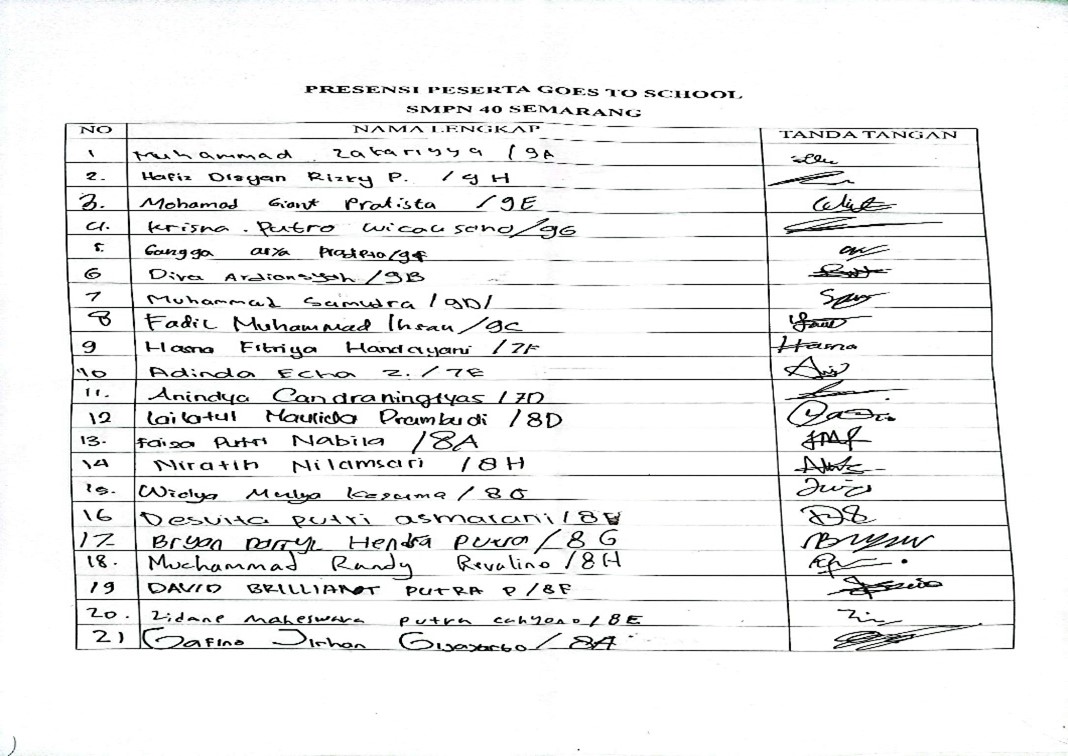 PRESENSI PESERTA GOES TO SCHOOL
SMPN 40 SEMARANG
NO NAMA LENGKAP TANDA TANGAN
1 Muhammad Zakariyya / 9A
2. Hafiz Disyan Rizky P. / 9H
3. Mohamad Giant Pratista / 9E
4. Krisna Putro wicaksono / 9G
5. Gangga arya
6 Diva Ardiansyah / 9B
7 Muhammad Samudra / 9D/
8 Fadil Muhammad Ihsan / 9C
9 Hasna Fitriya Handayani / 7F Hasna
10 Adinda Echa Z. / 7E
11. Anindya Candraningtyas / 7D
12 Lailatul Maulida Prambudi / 8D
13. Faiza Putri Nabila / 8A
14 Niratih Nilamsari / 8H
15. Widya Mulya Kesuma
16 Desvita putri asmarani
17 Bryan Darryl Hendra Putra / 8G Bryan
18. Muchammad Randy Revalino / 8H
19 DAVID BRILLIANT PUTRA P / 8F
20. Zidane Maheswara putra cahyono / 8E
21 Gafino Jirhan / 8A